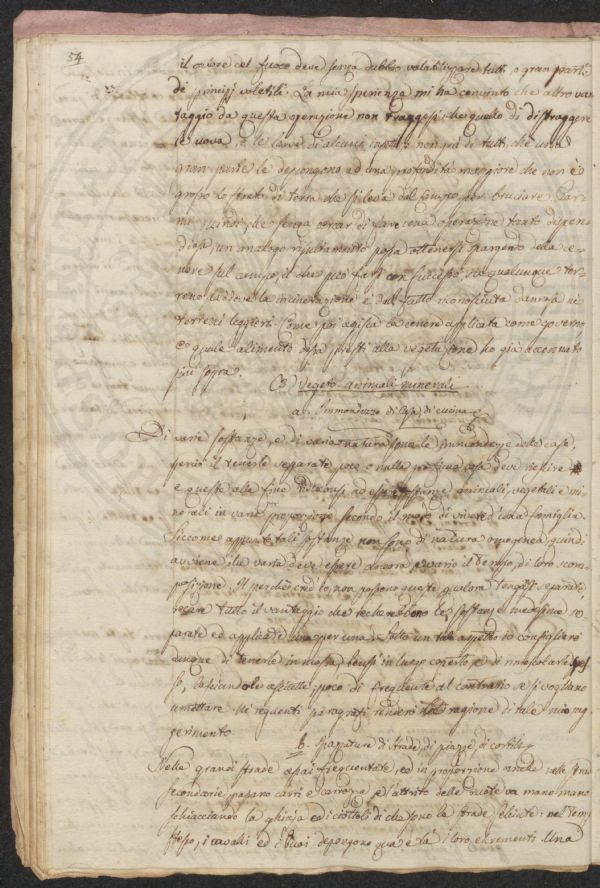 54
il calore del fuoco deve senza dubbio volatilizzare tutti, o gran parte
de' principj volatili. La mia sperienza mi ha convinto che altro van
taggio da questa operazione non traggasi, che quello di distruggere
le uova, e le larve di alcuni insetti, non già di tutti, che una
gran parte le depongono ad una profondità maggiore che non è
grosso lo strato di terra che si leva dal campo per bruciare. Par
mi quindi, che senza cercar di fare una operazione tanto dispen
diosa, un analogo risultamento possa ottenersi spargendo della ce
nere sul campo, il che può farsi con successo in qualunque ter
reno laddove la incinerazione è dal fatto riconosciuta dannosa ne'
terreni leggieri. Come poi agisca la cenere applicata come governo
e quale alimento essa presti alla vegetazione ho già accennato
più sopra.
C) Vegeto-animali-minerali
a. Immondezze di casa, di cucina
Di varie sostanze, e di varia natura sono le immondezze delle case,
perciò il tenerle separate, poco o nulla
e queste alla fine riduconsi ad essere sostanze animali, vegetali e mi
nerali in varie proporzioni secondo il modo di vivere della famiglia.
Siccome appunto tali sostanze non sono di natura omogenea, quindi
avviene che varia deve essere ancora e vario il tempo di loro scom
posizione. Il perchè credo io, non possono queste qualora tengansi separate
recare tutto il vantaggio che recherebbero le sostanze medesime se
parate ed applicate una per una. Sotto un tale aspetto io consiglierò
dunque di tenerle in massa, bensì in luogo coperto, e di rimescolarle spes
so, lasciandole asciutte poco di frequente al contrario se si vogliano
umettare. Ne' seguenti paragrafi renderò ragione di tale mio sug
gerimento.
b. Spazzature di strade, di piazze, di cortili
Nelle grandi strade assai frequentate, ed in proporzione anche nelle stra
secondarie, passano carri e carrozze e l'attrito delle ruote va mano mano
schiacciando la ghiaja ed i ciottoli di che sono le strade selciate: nel temp
stesso, i cavalli ed i buoi depongono qua e là i loro escrementi. Una